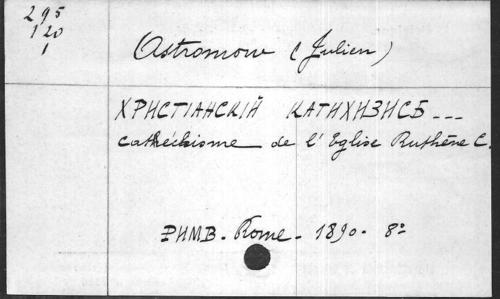 295
120
1
Astromow (Julien)
ХРИСТІАНСКІЙ КАТИХИЗИСЪ ---
Cathéchisme de l'Eglise Ruthène C.
РИМВ - Rome - 1890 - 8°